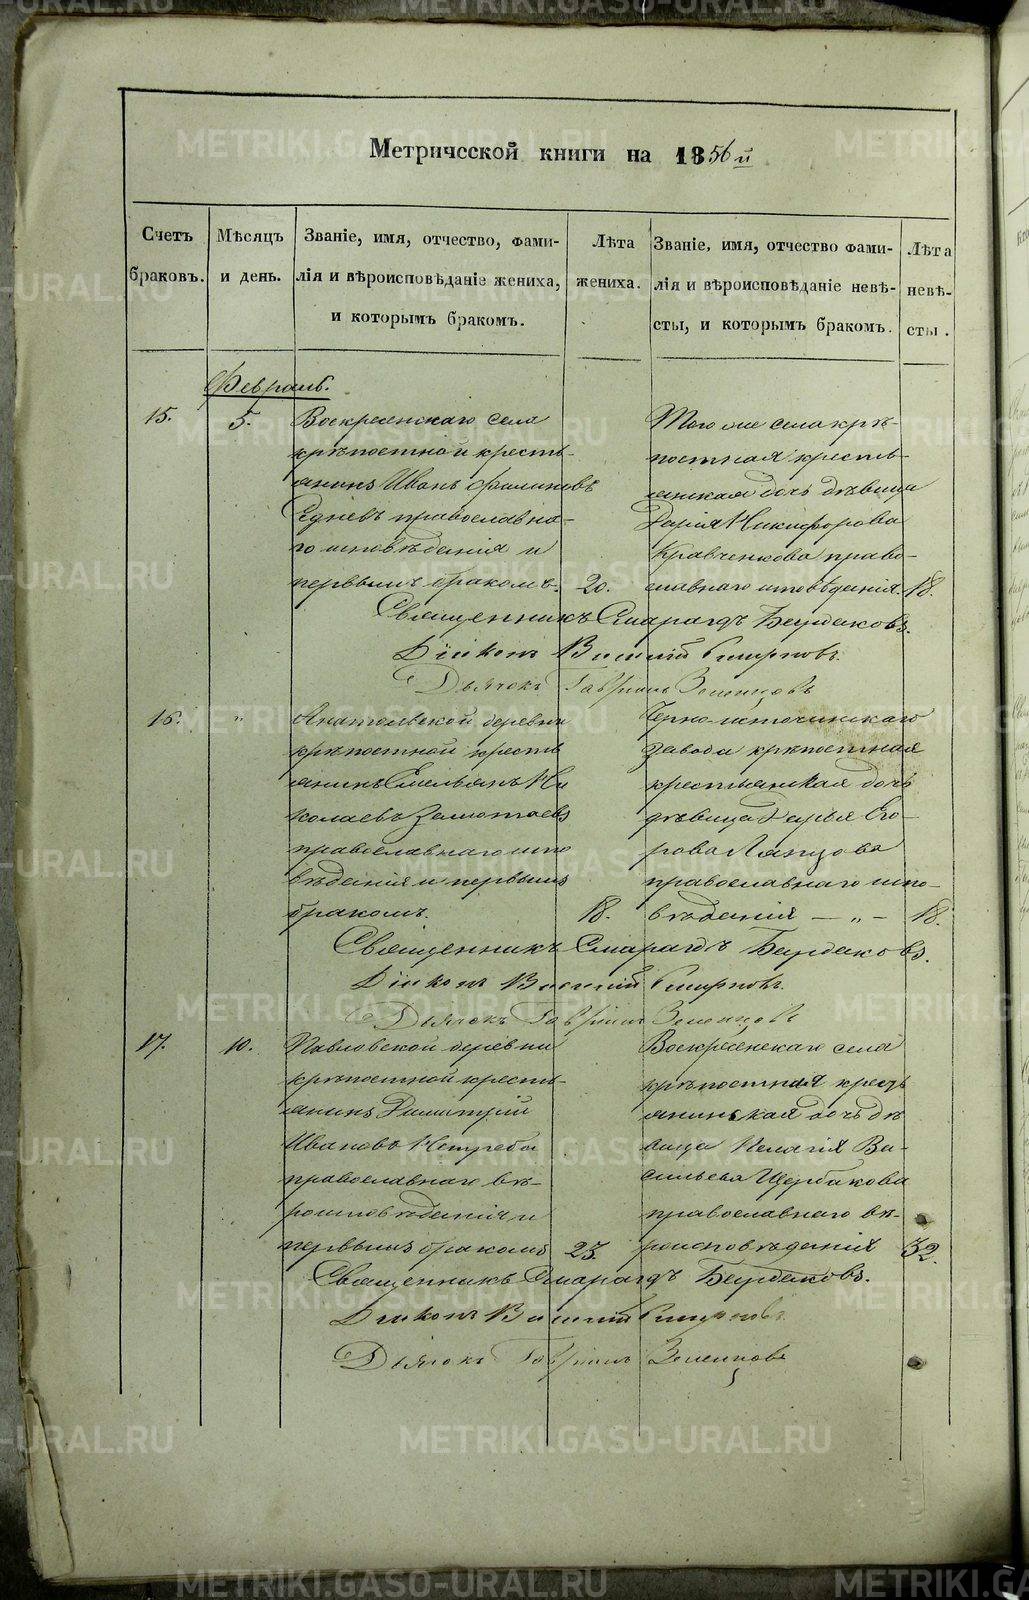 Метрической книги на 1856й
Счетъ браковъ.
Мѣсяцъ и день.
Званіе, имя, отчество, фами-
лія и вѣроисповѣданіе жениха,
и которымъ бракомъ.
Лѣта жениха.
Званіе, имя, отчество фами-
лія и вѣроисповѣданіе невѣ-
сты, и которымъ бракомъ.
Лѣта невѣ-
сты.
Февраль.
15.
5.
Воскресенскаго села
крѣпостной кресть-
янинъ Иванъ Филиповъ
Едневъ православна-
го исповѣданія и
первымъ бракомъ.
20.
Того же села крѣ-
постная кресть-
янская дочь дѣвица
Дарія Никифорова
Кравченкова право-
славнаго исповѣданія.
18.
Священникъ Смарагдъ Бурдаковъ.
Діяконъ Василій Смирновъ.
Дьячокъ Гавріилъ Зеленцовъ
16.
"
Анатольской деревни
крѣпостной кресть
янинъ Емельянъ Ни
колаевъ
православнаго испо
вѣданія и первымъ
бракомъ.
18.
Черно-источинскаго
завода крѣпостная
крестьянская дочь
дѣвица Дарья Его-
рова Ляпцова
православнаго испо-
вѣданія — „ —
18.
Священникъ Смарагдъ Бурдаковъ.
Діяконъ Василій Смирновъ.
Дьячокъ Гавріилъ Зеленцовъ
17.
10.
Павловской деревни
крѣпостной кресть-
янинъ Димитрій
Ивановъ Непреба
православнаго вѣ-
роисповѣданія и
первымъ бракомъ
23.
Воскресенскаго села
крѣпостная кресть
янинская дочь дѣ
вица Пелагія Ва-
сильева Щербакова
православнаго вѣ-
роисповѣданія
32.
Священникъ Смарагдъ Бурдаковъ.
Діяконъ Василій Смирновъ.
Дьячокъ Гавріилъ Зеленцовъ
METRIKI.GASO-URAL.RU